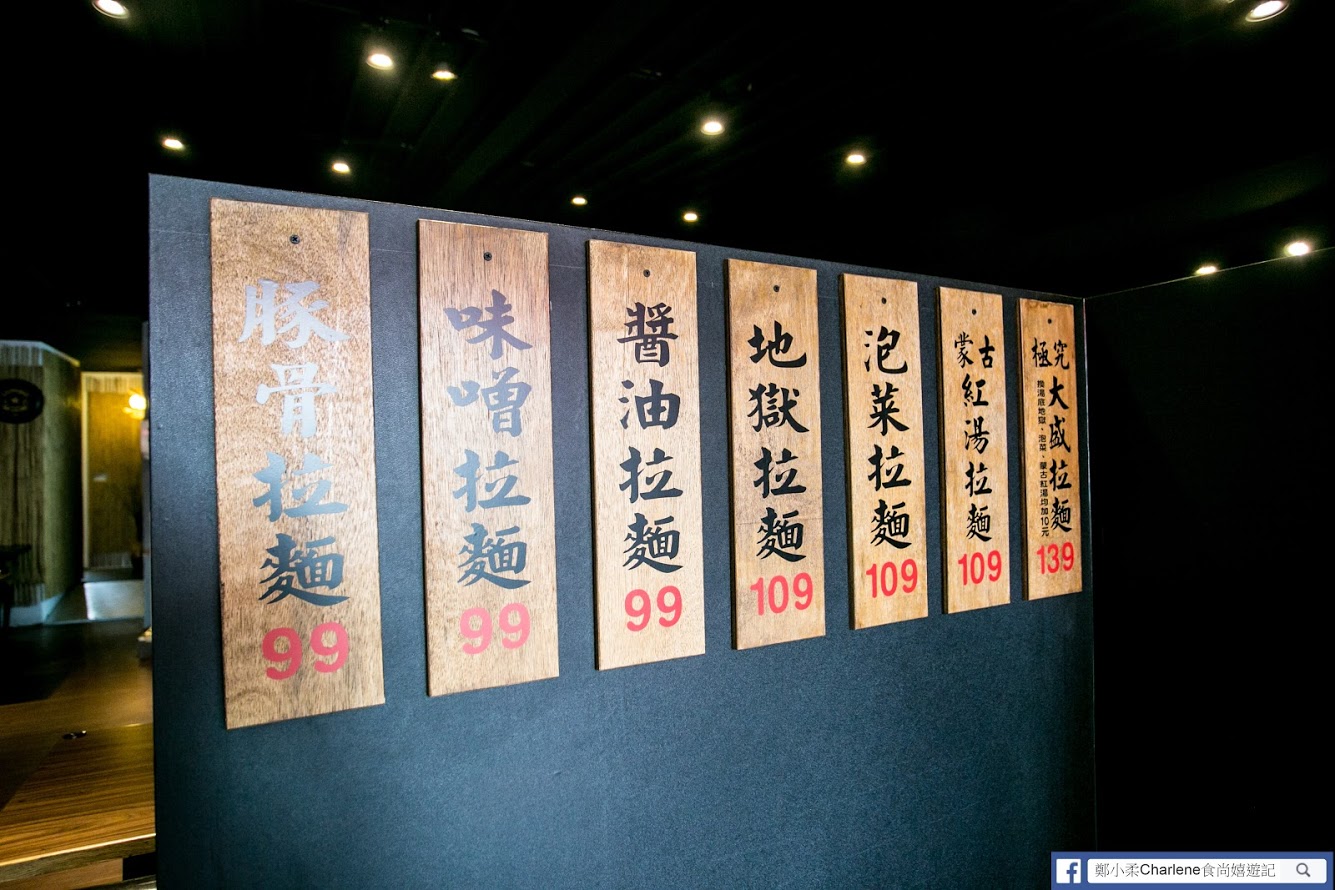 豚骨拉麵
99
味噌拉麵
99
醬油拉麵
99
地獄拉麵
109
泡菜拉麵
109
蒙古紅湯拉麵
109
極究大盛拉麵
換湯底地獄・泡菜・蒙古紅湯均加10元
139
鄭小柔Charlene食尚嬉遊記